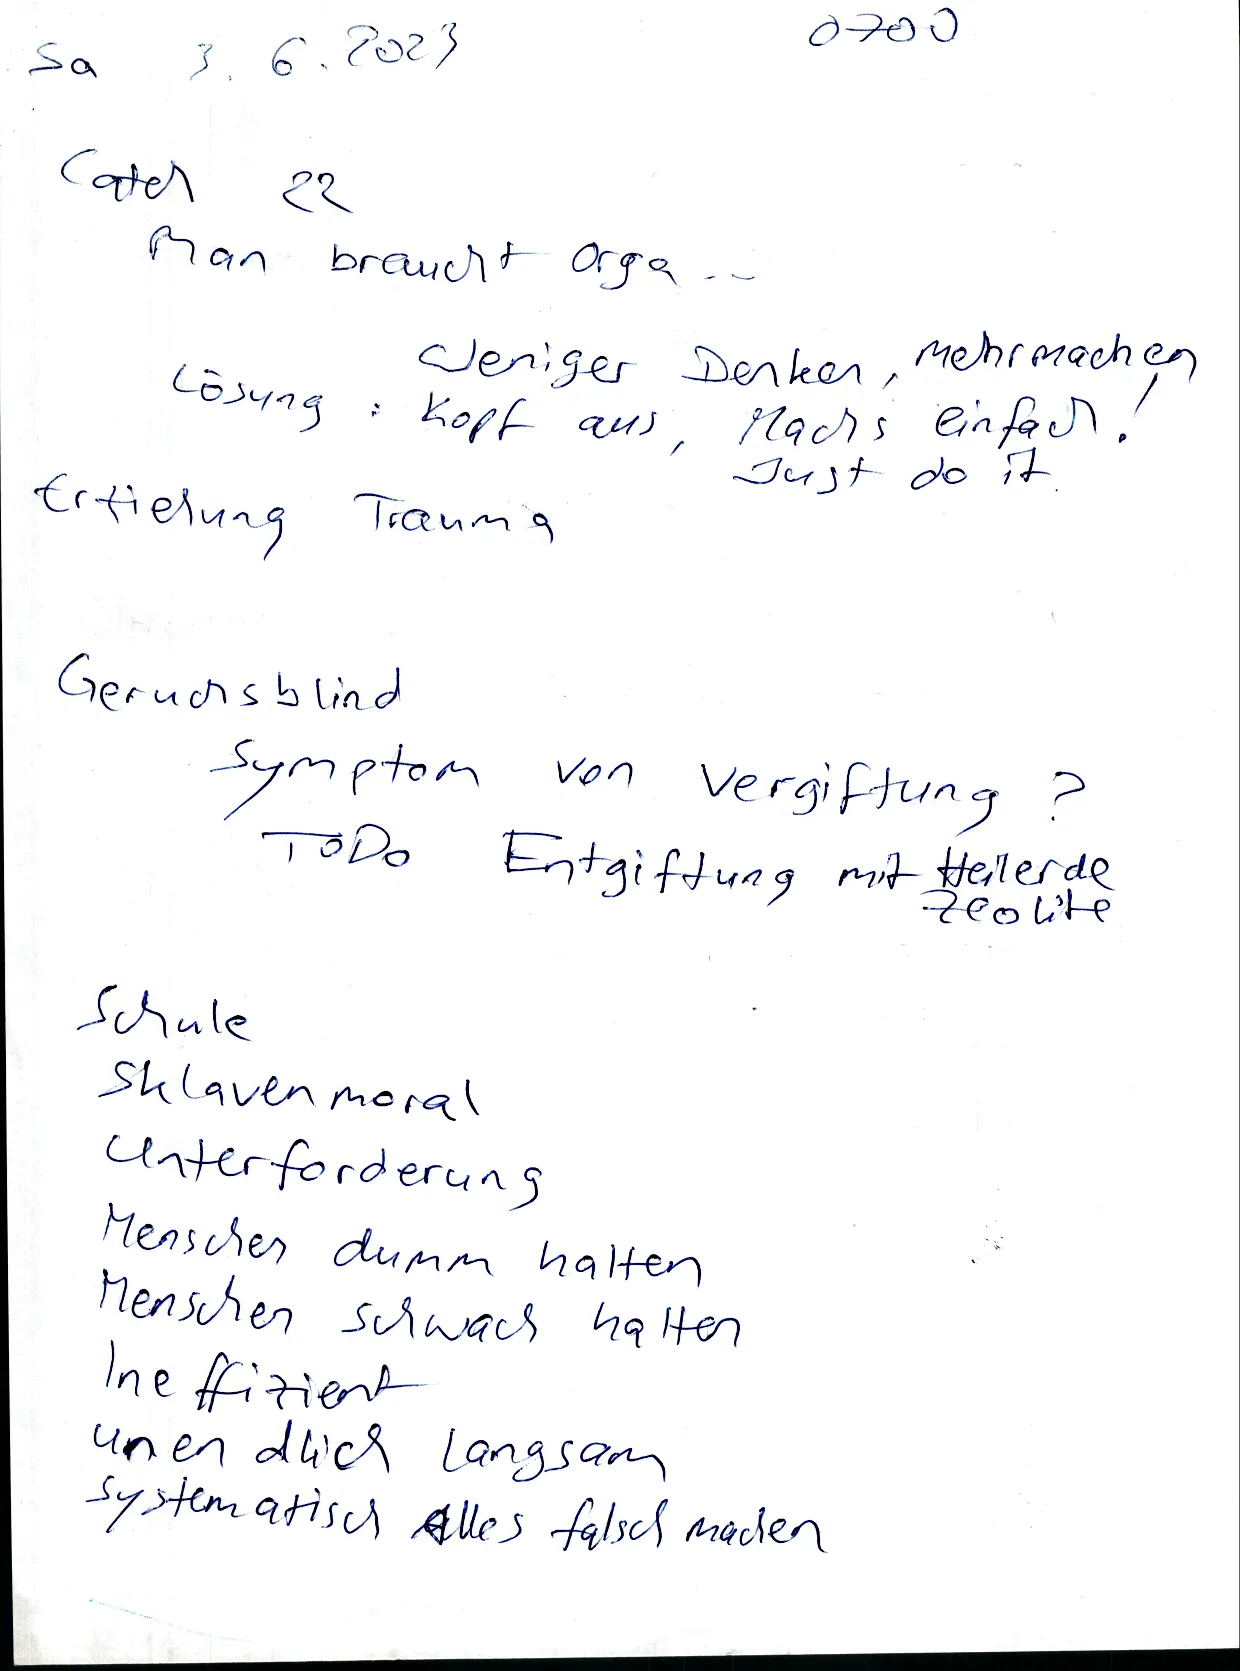 Sa 3.6.2023 0700
Catch 22
Man braucht Orga ...
Weniger Denken, Mehr machen
Lösung: Kopf aus, Machs einfach!
Just do it
Erziehung Trauma
Geruchsblind
Symptom von Vergiftung?
ToDo Entgiftung mit Heilerde
Zeolite
Schule
Sklavenmoral
Unterforderung
Menschen dumm halten
Menschen schwach halten
Ineffizient
unendlich Langsam
systematisch Alles falsch machen